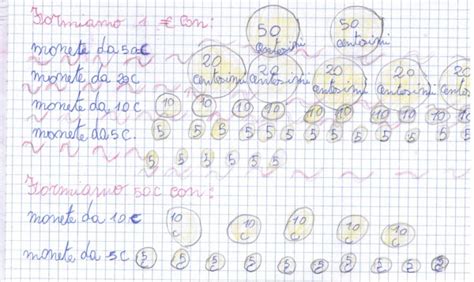 Formiamo 1 € con:
50 centesimi 50 centesimi
monete da 50c
20 centesimi 20 centesimi 20 centesimi 20 centesimi 20 centesimi
monete da 20c
monete da 10 c 10 10 10 10 10 10 10 10 10 10
monete da 5 c. 5 5 5 5 5 5 5 5 5 5 5 5 5 5
5 5 5 5 5 5
Formiamo 50c con:
monete da 10 c 10 c 10 c 10 c 10 c 10 c
monete da 5 c 5 5 5 5 5 5 5 5 5 5